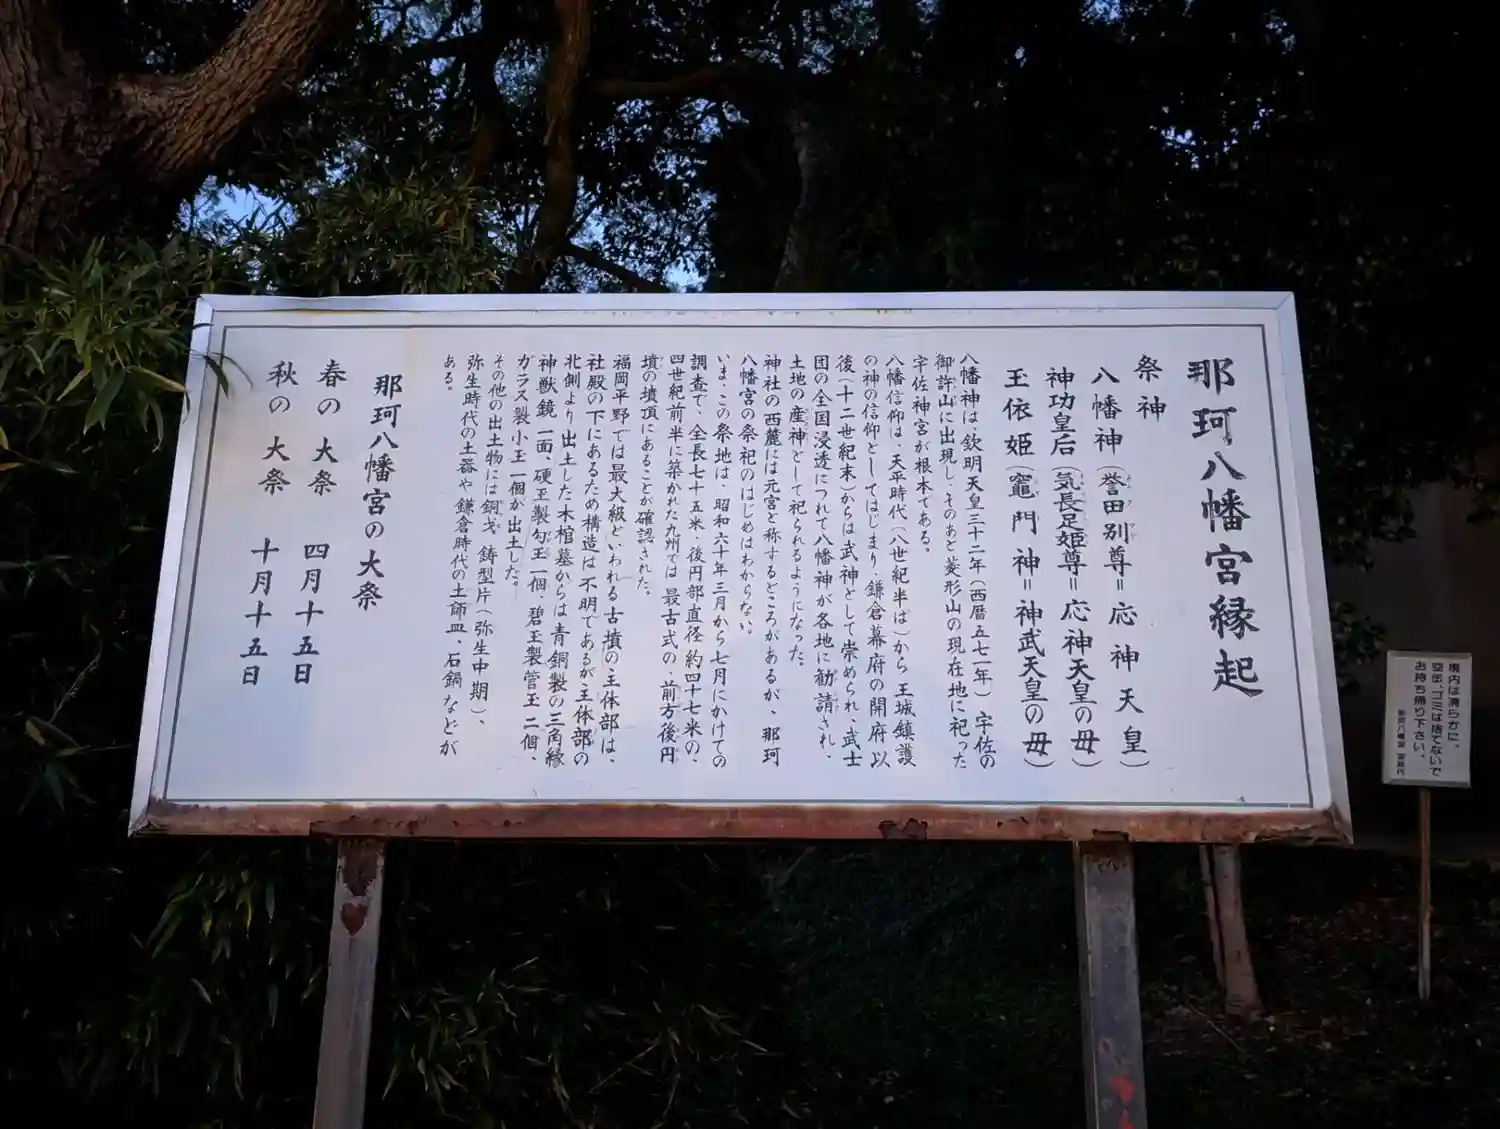 那珂八幡宮縁起
祭神
八幡神(誉田別尊=応神天皇)
神功皇后(気長足姫尊=応神天皇の母)
玉依姫(竈門神=神武天皇の母)
八幡神は、欽明天皇三十二年(西暦五七一年)宇佐の
御許山に出現し、そのあと菱形山の現在地に祀った
宇佐神宮が根本である。
八幡信仰は、天平時代(八世紀半ば)から王城鎮護
の神の信仰としてはじまり、鎌倉幕府の開府以
後(十二世紀末)からは武神として崇められ、武士
団の全国浸透につれて八幡神が各地に勧請され、
土地の産神として祀られるようになった。
神社の西麓には元宮と称するところがあるが、那珂
八幡宮の祭祀のはじめはわからない。
いま、この祭地は、昭和六十年三月から七月にかけての
調査で、全長七十五米、後円部直径約四十七米の、
四世紀前半に築かれた九州では最古式の、前方後円
墳の墳頂にあることが確認された。
福岡平野では最大級といわれる古墳の主体部は、
社殿の下にあるため構造は不明であるが主体部の
北側より出土した木棺墓からは青銅製の三角縁
神獣鏡一面、硬玉製勾玉一個、碧玉製管玉二個、
ガラス製小玉一個が出土した。
その他の出土物には銅戈鋳型片(弥生中期)、
弥生時代の土器や鎌倉時代の土師皿、石鍋などが
ある。
那珂八幡宮の大祭
春の大祭 四月十五日
秋の大祭 十月十五日
境内は清らかに、
空缶、ゴミは捨てないで
お持ち帰り下さい。
那珂八幡宮 宮総代